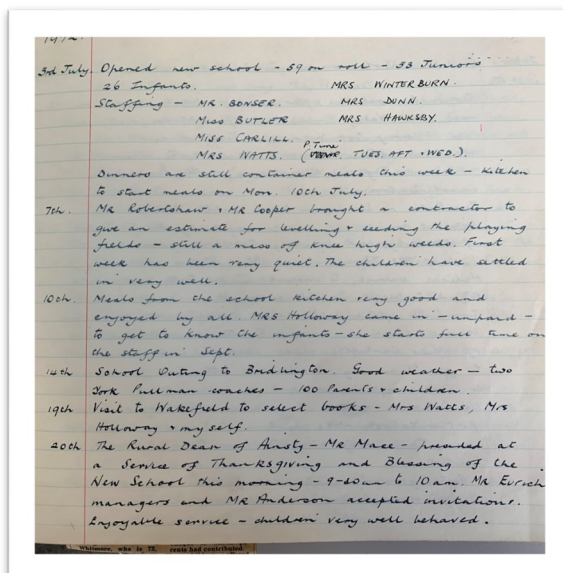 1972.
3rd July. Opened new school - 59 on roll - 33 Juniors
26 Infants. MRS WINTERBURN.
Staffing - MR. BONSER. MRS DUNN.
MISS BUTLER MRS HAWKSBY.
MISS CARLILL.
P. Time
MRS WATTS. (TUES. AFT + WED.).
Dinners are still container meals this week - Kitchen
to start meals on Mon. 10th July.
7th. MR Robertshaw + MR Cooper brought a contractor to
give an estimate for levelling + seeding the playing
fields - still a mess of knee high weeds. First
week has been very quiet. The children have settled
in very well.
10th. Meals from the school kitchen very good and
enjoyed by all. MRS Holloway came in - unpaid -
to get to know the infants - she starts full time on
the staff in Sept.
14th School Outing to Bridlington. Good weather - two
York Pullman coaches - 100 Parents + children.
19th Visit to Wakefield to select books - Mrs Watts, Mrs
Holloway + myself.
20th The Rural Dean of Ainsty - MR Mace - presided at
a Service of Thanksgiving and Blessing of the
New School this morning - 9-20am to 10am. MR Eurich
managers and MR Anderson accepted invitations.
Enjoyable service - children very well behaved.
Whitmore, who is 72, rents had contributed.